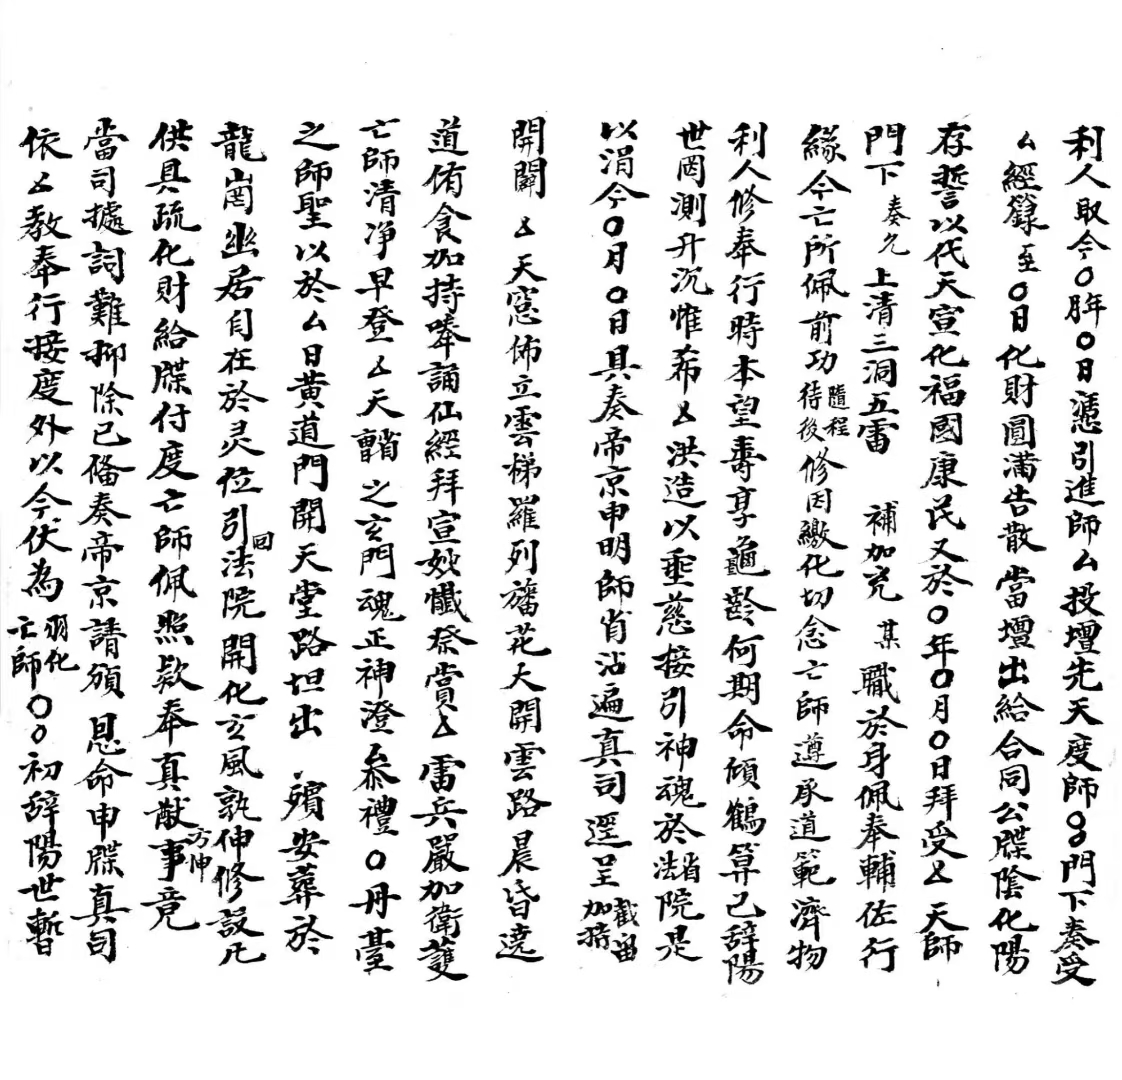 利人取今〇年〇日憑引進師厶投壇先天度師〇〇門下奏受
厶經籙至〇日化財圓滿告散當壇出給合同公牒陰化陽
存誓以代天宣化福國康民又於〇年〇月〇日拜受厶天師
門下奏允上清三洞五雷 補加充 某職於身佩奉輔佐行
緣今亡所佩前功隨程待後修因繳化切念亡師遵承道範濟物
利人修奉行時本望壽享龜齡何期命傾鶴算已辭陽
世罔測升沉惟希厶洪造以垂慈接引神魂於省法院是
以涓今〇月〇日具奏帝京申明師省沾遍真司逕呈截留加持
開闢厶天窓佈立雲梯羅列旛花大開雲路晨昏遶
道侑食加持唪誦仙經拜宣妙懺祭賞厶雷兵嚴加衛護
亡師清净早登厶天省之玄門魂正神澄叅禮〇丹臺
之師聖以於厶日黄道門開天堂路坦出 殯安葬於
龍崗幽居自在於灵位引回法院開化玄風孰伸修設凡
供具疏化財給牒付度亡師佩照欵奉真猷事竟方伸
當司據詞難抑除已俻奏帝京請頒 恩命申牒真司
依厶教奉行接度外以今伏為羽化亡師〇〇初辞陽世暫